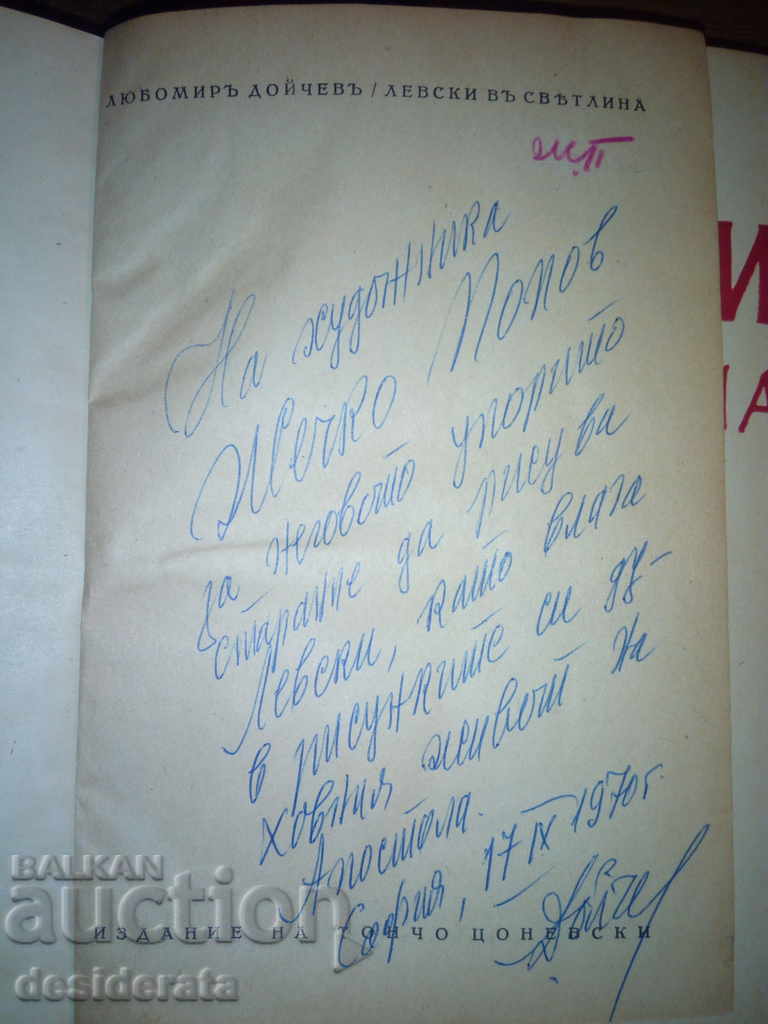 ЛЮБОМИРЪ ДОЙЧЕВЪ / ЛЕВСКИ ВЪ СВѢТЛИНА
ЖП
На художника
Жечко Попов
за неговото упорито
старание да рисува
Левски, като влага
в рисунките си ду-
ховния живот на
Апостола.
София, 17 IX 1970 г.
Дойчев
ИЗДАНИЕ НА ТОНЧО ЦОНЕВСКИ
И
НА
BALKAN
auction
desiderata